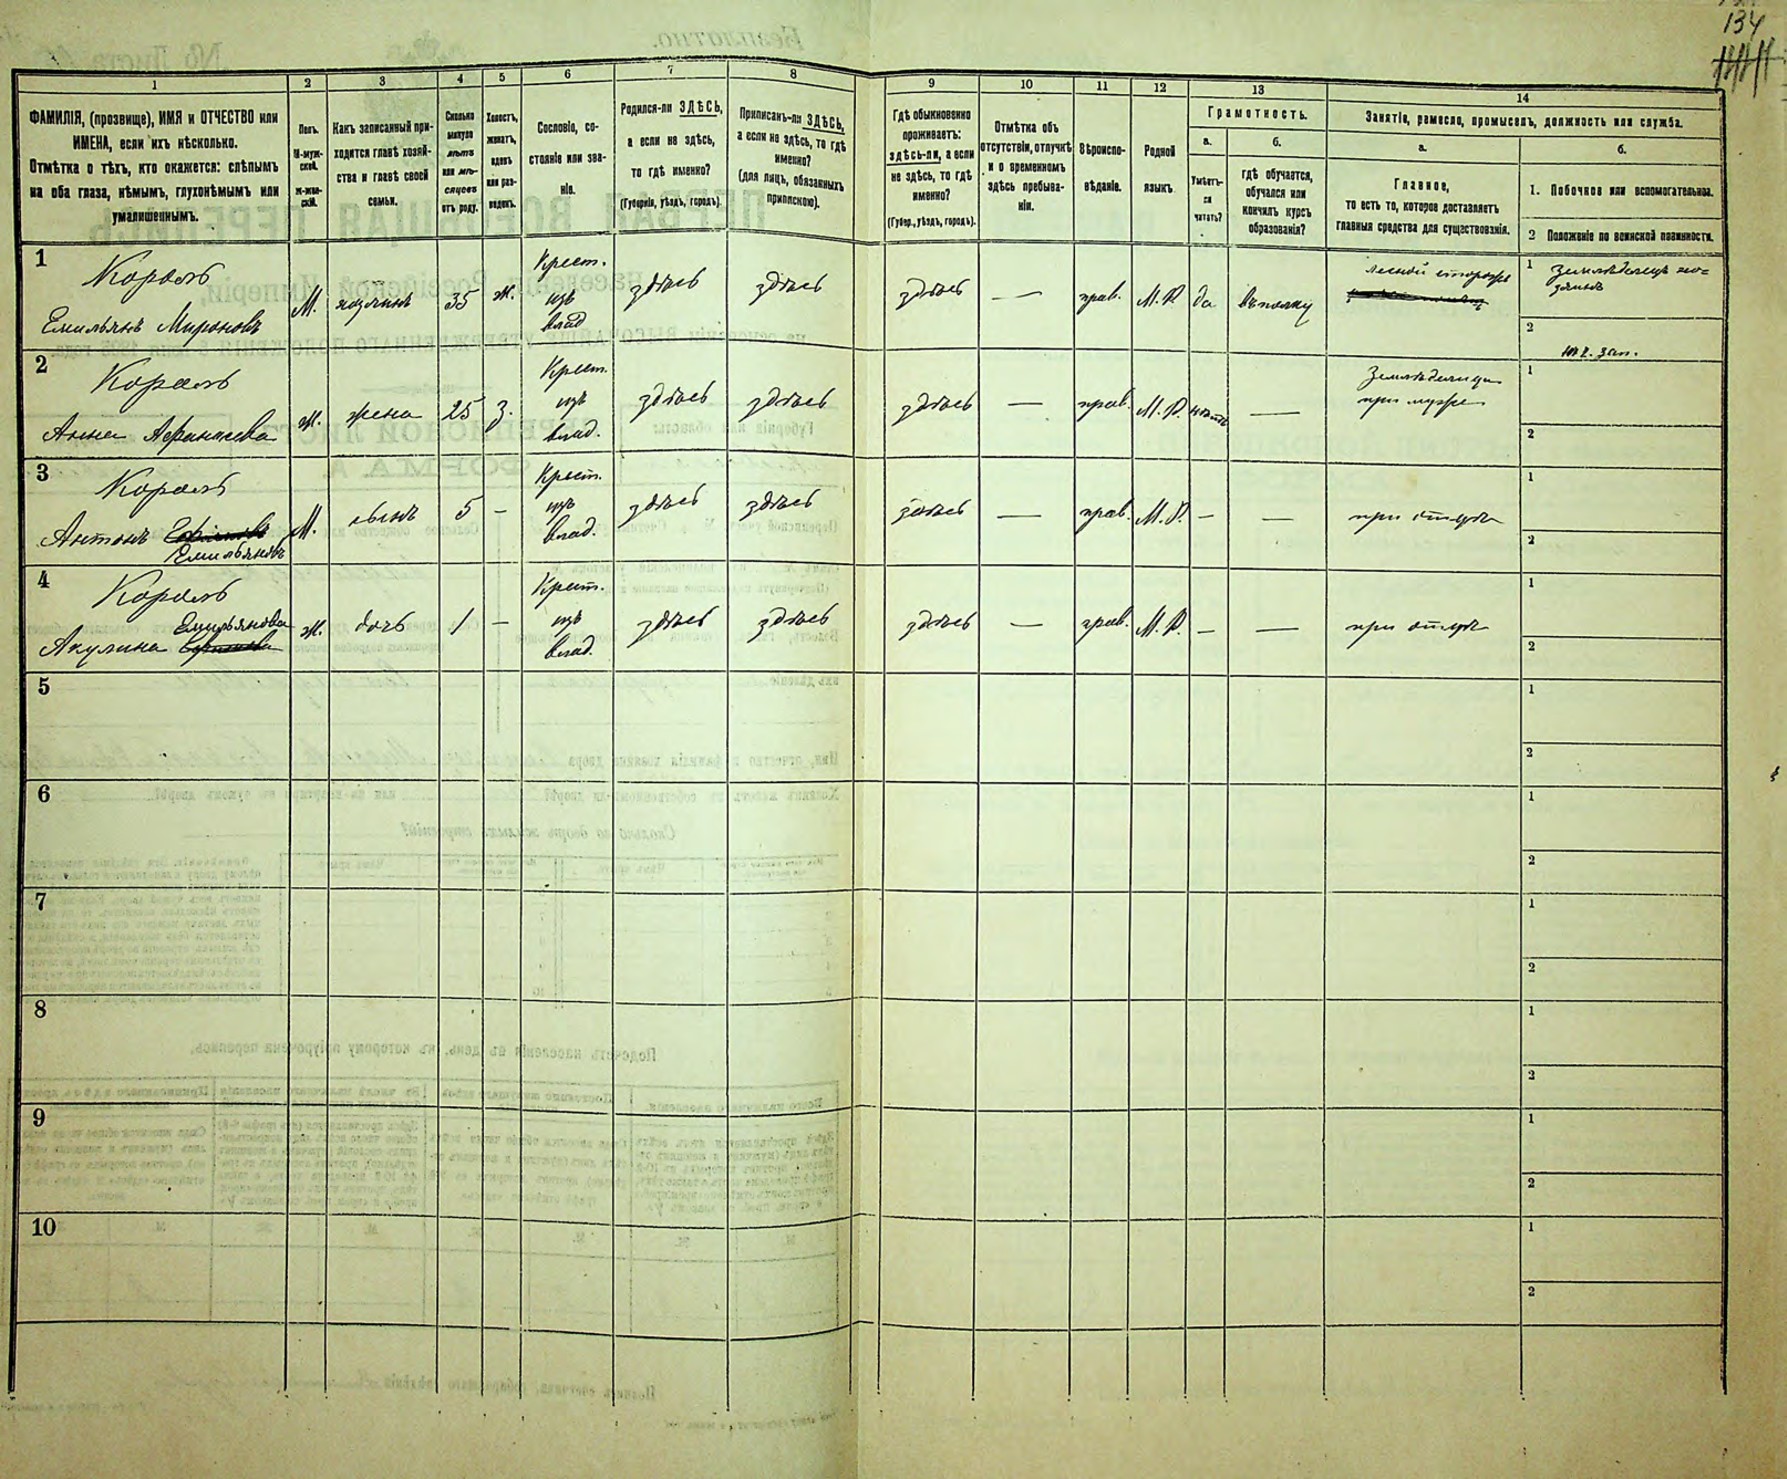 134
1
2
3
4
5
6
7
8
9
10
11
12
13
14
ФАМИЛІЯ, (прозвище), ИМЯ и ОТЧЕСТВО или
ИМЕНА, если ихъ нѣсколько.
Отмѣтка о тѣхъ, кто окажется: слѣпымъ
на оба глаза, нѣмымъ, глухонѣмымъ или
умалишеннымъ.
Полъ.
М-муж-
ской.
Ж-жен-
скій.
Какъ записанный при-
ходится главѣ хозяй-
ства и главѣ своей
семьи.
Сколько
минуло
лѣтъ
или мѣ-
сяцевъ
отъ роду.
Холостъ,
женатъ,
вдовъ
или раз-
веденъ.
Сословіе, со-
стояніе или зва-
ніе.
Родился-ли ЗДѢСЬ,
а если не здѣсь,
то гдѣ именно?
(Губернія, уѣздъ, городъ).
Приписанъ-ли ЗДѢСЬ,
а если не здѣсь, то гдѣ
именно?
(для лицъ, обязанныхъ
припискою).
Гдѣ обыкновенно
проживаетъ:
здѣсь-ли, а если
не здѣсь, то гдѣ
именно?
(Губер., уѣздъ, городъ).
Отмѣтка объ
отсутствіи, отлучкѣ
и о временномъ
здѣсь пребыва-
ніи.
Вѣроиспо-
вѣданіе.
Родной
языкъ.
Грамотность.
а.
Умѣетъ-
ли
читать?
б.
гдѣ обучается,
обучался или
кончилъ курсъ
образованія?
Занятіе, ремесло, промыселъ, должность или служба.
а.
Главное,
то есть то, которое доставляетъ
главныя средства для существованія.
б.
1. Побочное или вспомогательное.
2 Положеніе по воинской повинности.
1
Король
Емильянъ Мироновъ
М.
хозяинъ
35
ж.
Крест.
изъ
влад
здѣсь
здѣсь
здѣсь
—
прав.
М.Р.
да
въ полку
лесной сторожъ
1 Земледѣлецъ хо=
зяинъ
2
2
Король
Анна Афанасьева
ж.
жена
25
з.
Крест.
изъ
влад.
здѣсь
здѣсь
здѣсь
—
прав.
М.Р.
нѣтъ
—
Земледѣлица
при мужѣ
1
2
3
Король
Антонъ
Емильяновъ
М.
сынъ
5
—
Крест.
изъ
влад.
здѣсь
здѣсь
здѣсь
—
прав.
М.Р.
—
—
при отцѣ
1
2
4
Король
Емильянова
Акулина
ж.
дочь
1
—
Крест.
изъ
влад.
здѣсь
здѣсь
здѣсь
—
прав.
М.Р.
—
—
при отцѣ
1
2
5
1
2
6
1
2
7
1
2
8
1
2
9
1
2
10
1
2